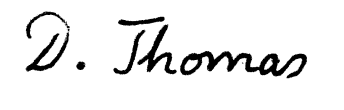 D. Thomas